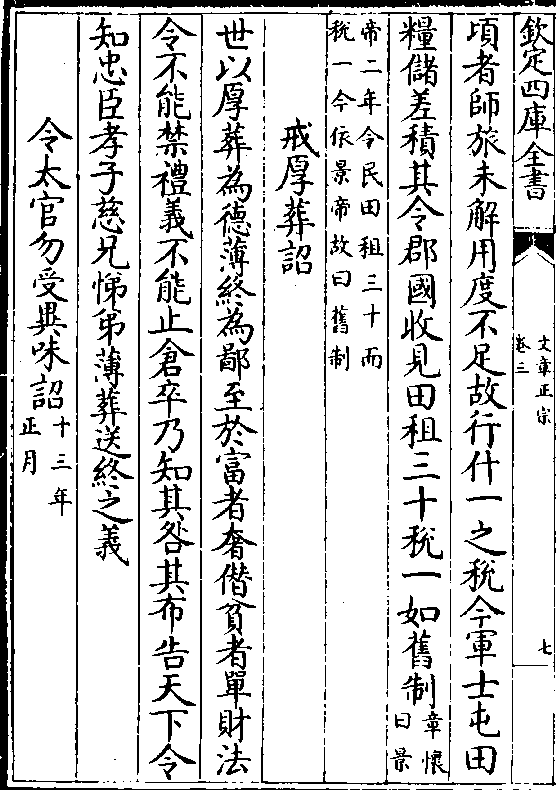 欽定四庫全書
文章正宗
卷三
七
頃者師旅未解用度不足故行什一之稅今軍士屯田
糧儲差積其令郡國收見田租三十稅一如舊制章懷
曰景
帝二年令民田租三十而
稅一今依景帝故曰舊制
戒厚葬詔
世以厚葬為德薄終為鄙至於富者奢僭貧者單財法
令不能禁禮義不能止倉卒乃知其咎其布告天下令
知忠臣孝子慈兄悌弟薄葬送終之義
令太官勿受異味詔十三年
正月